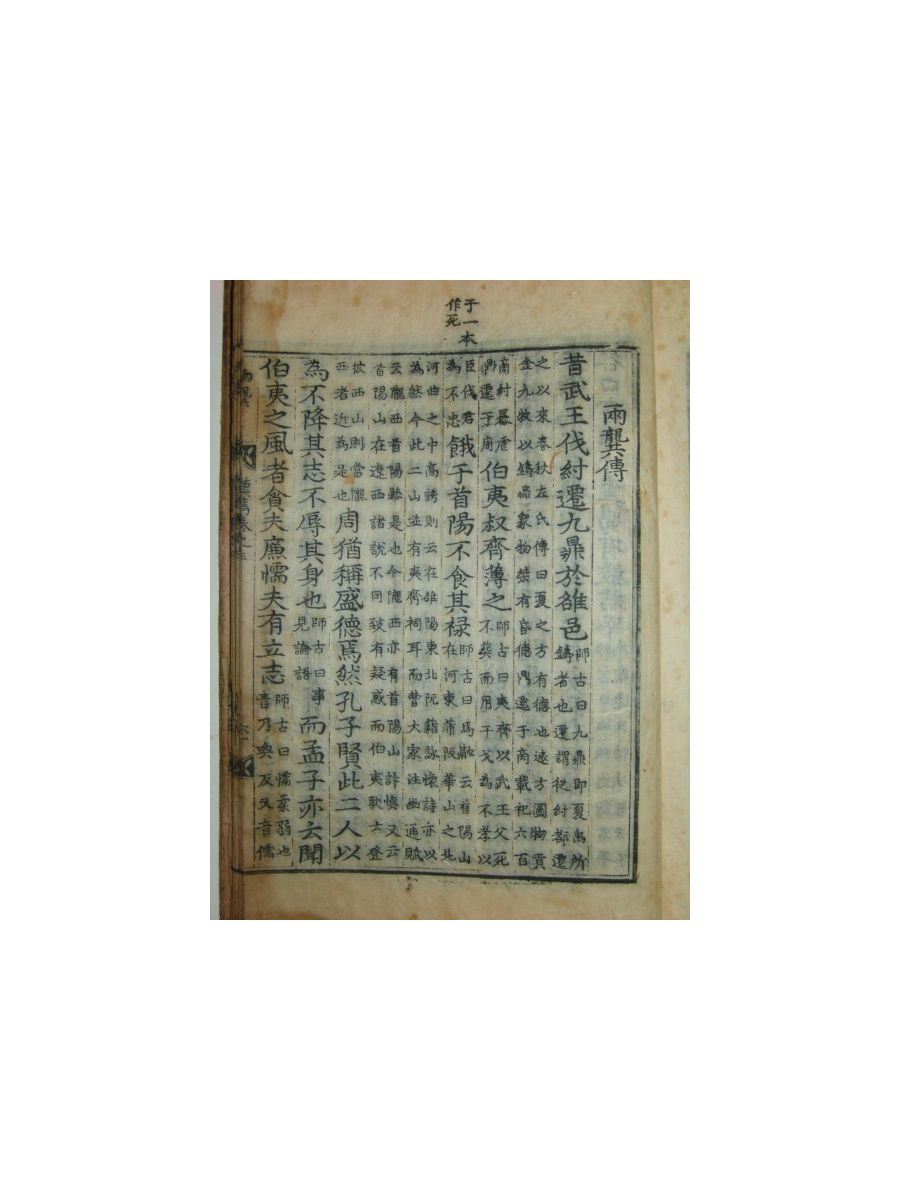 于一本
作死
兩龔傳
昔武王伐紂遷九鼎於雒邑師古曰九鼎即夏禹所鑄者也遷謂從紂都遷
之以來春秋左氏傳曰夏之方有德也遠方圖物貢金九牧以鑄鼎象物桀有昏德鼎遷于商載祀六百
商紂暴虐鼎遷于周伯夷叔齊薄之師古曰夷齊以武王父死不葬而用干戈為不孝以
臣伐君為不忠餓于首陽不食其祿師古曰馬融云首陽山在河東蒲阪華山之北
河曲之中高誘則云在雒陽東北阮籍詠懷詩亦以為然今此二山並有夷齊祠耳而曹大家注幽通賦
云隴西首陽縣是也今隴西亦有首陽山許慎又云首陽山在遼西諸說不同致有疑惑而伯夷歌云登
彼西山則當隴西者近為是也周猶稱盛德焉然孔子賢此二人以
為不降其志不辱其身也師古曰事見論語而孟子亦云聞
伯夷之風者貪夫廉懦夫有立志師古曰懦柔弱也音乃喚反又音儒
兩龔